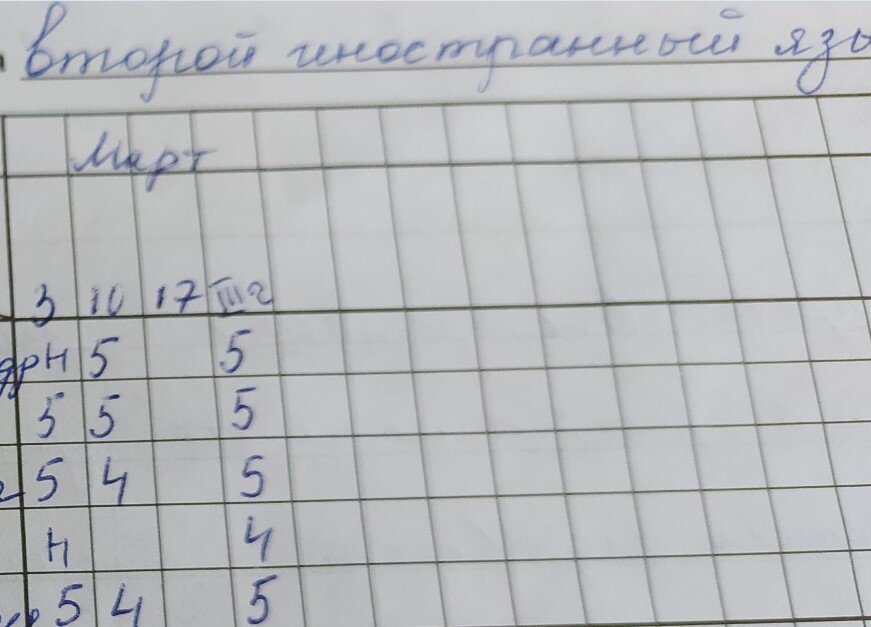 второй иностранный
Март
3 10 17 III г
н 5 5
5 5 5
5 4 5
н 4
5 4 5